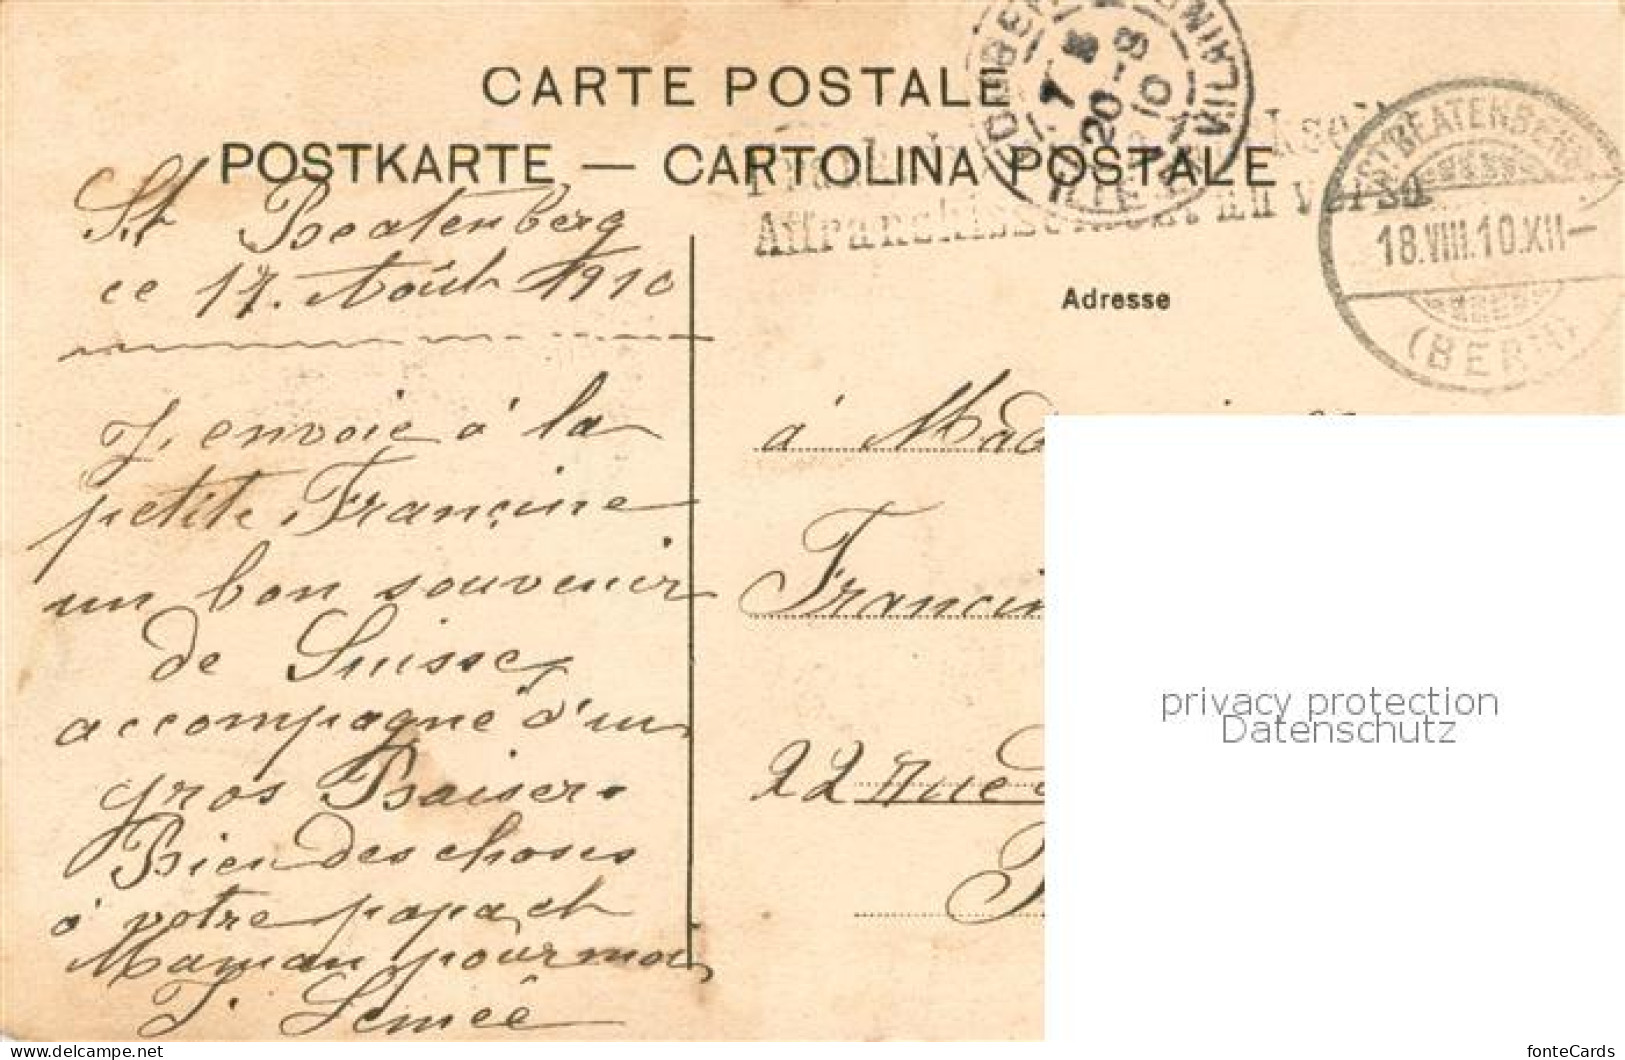 CARTE POSTALE
POSTKARTE — CARTOLINA POSTALE
Affranchissement au verso
ST BEATENBERG
18.VIII.10.XII—
(BERN)
7 E
20-8
10
Adresse
St Beatenberg
ce 17. Août 1910
J'envoie à la
petite Francine
un bon souvenir
de Suisse,
accompagné d'un
gros Baiser.
Bien des choses
à votre papa et
Maman pour moi
à Mad
Francin
22 Rue
privacy protection
Datenschutz
https://www.delcampe.net
fonteCards